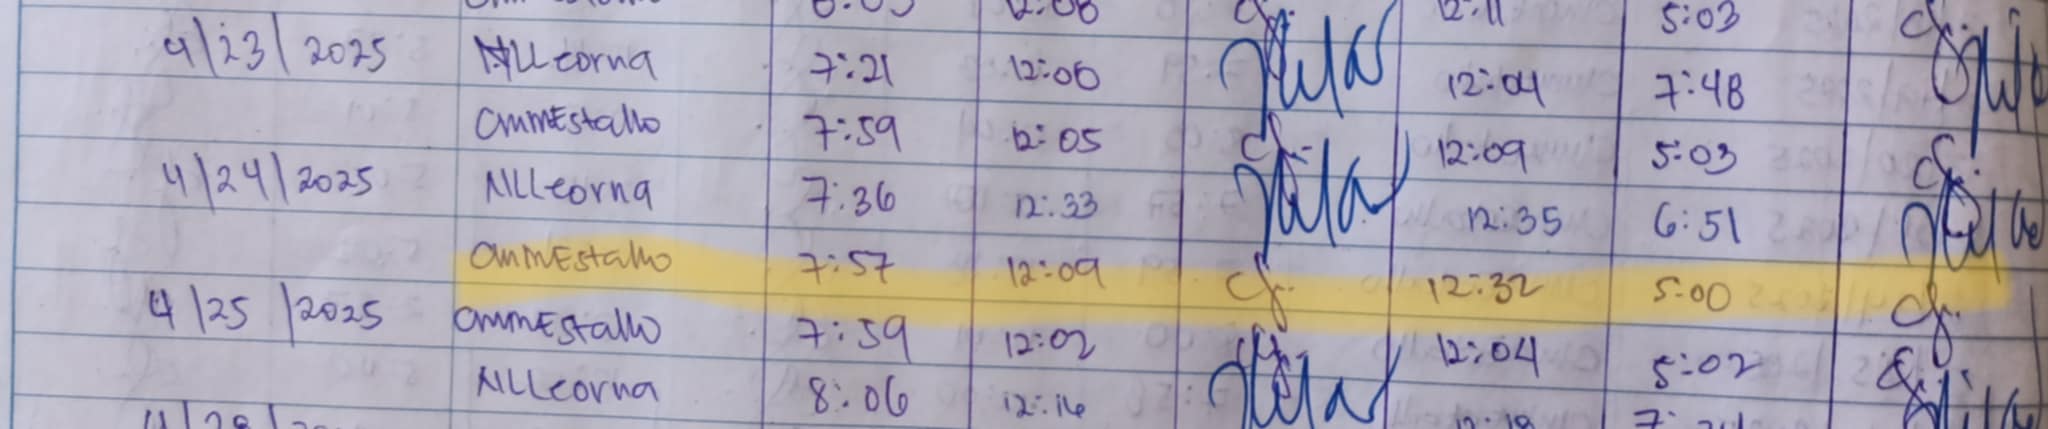 12:06 12:11 5:03
4/23/2025 NLLeorna 7:21 12:00 12:04 7:48
CMMEstallo 7:59 12:05 12:09 5:03
4/24/2025 NLLeorna 7:36 12:33 12:35 6:51
CMMEstallo 7:57 12:09 12:32 5:00
4/25/2025 CMMEstallo 7:59 12:02 12:04 5:02
NLLeorna 8:06 12:16